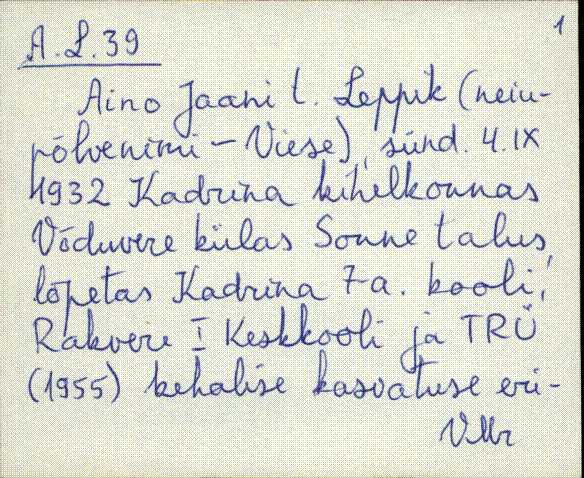 1
A.L.39
Aino Jaani t. Leppik (neiu-
põlvenimi - Viese), sünd. 4.IX
1932 Kadrina kihelkonnas
Võduvere külas Sonne talus,
lõpetas Kadrina 7-a. kooli,
Rakvere I Keskkooli ja TRÜ
(1955) kehalise kasvatuse eri-